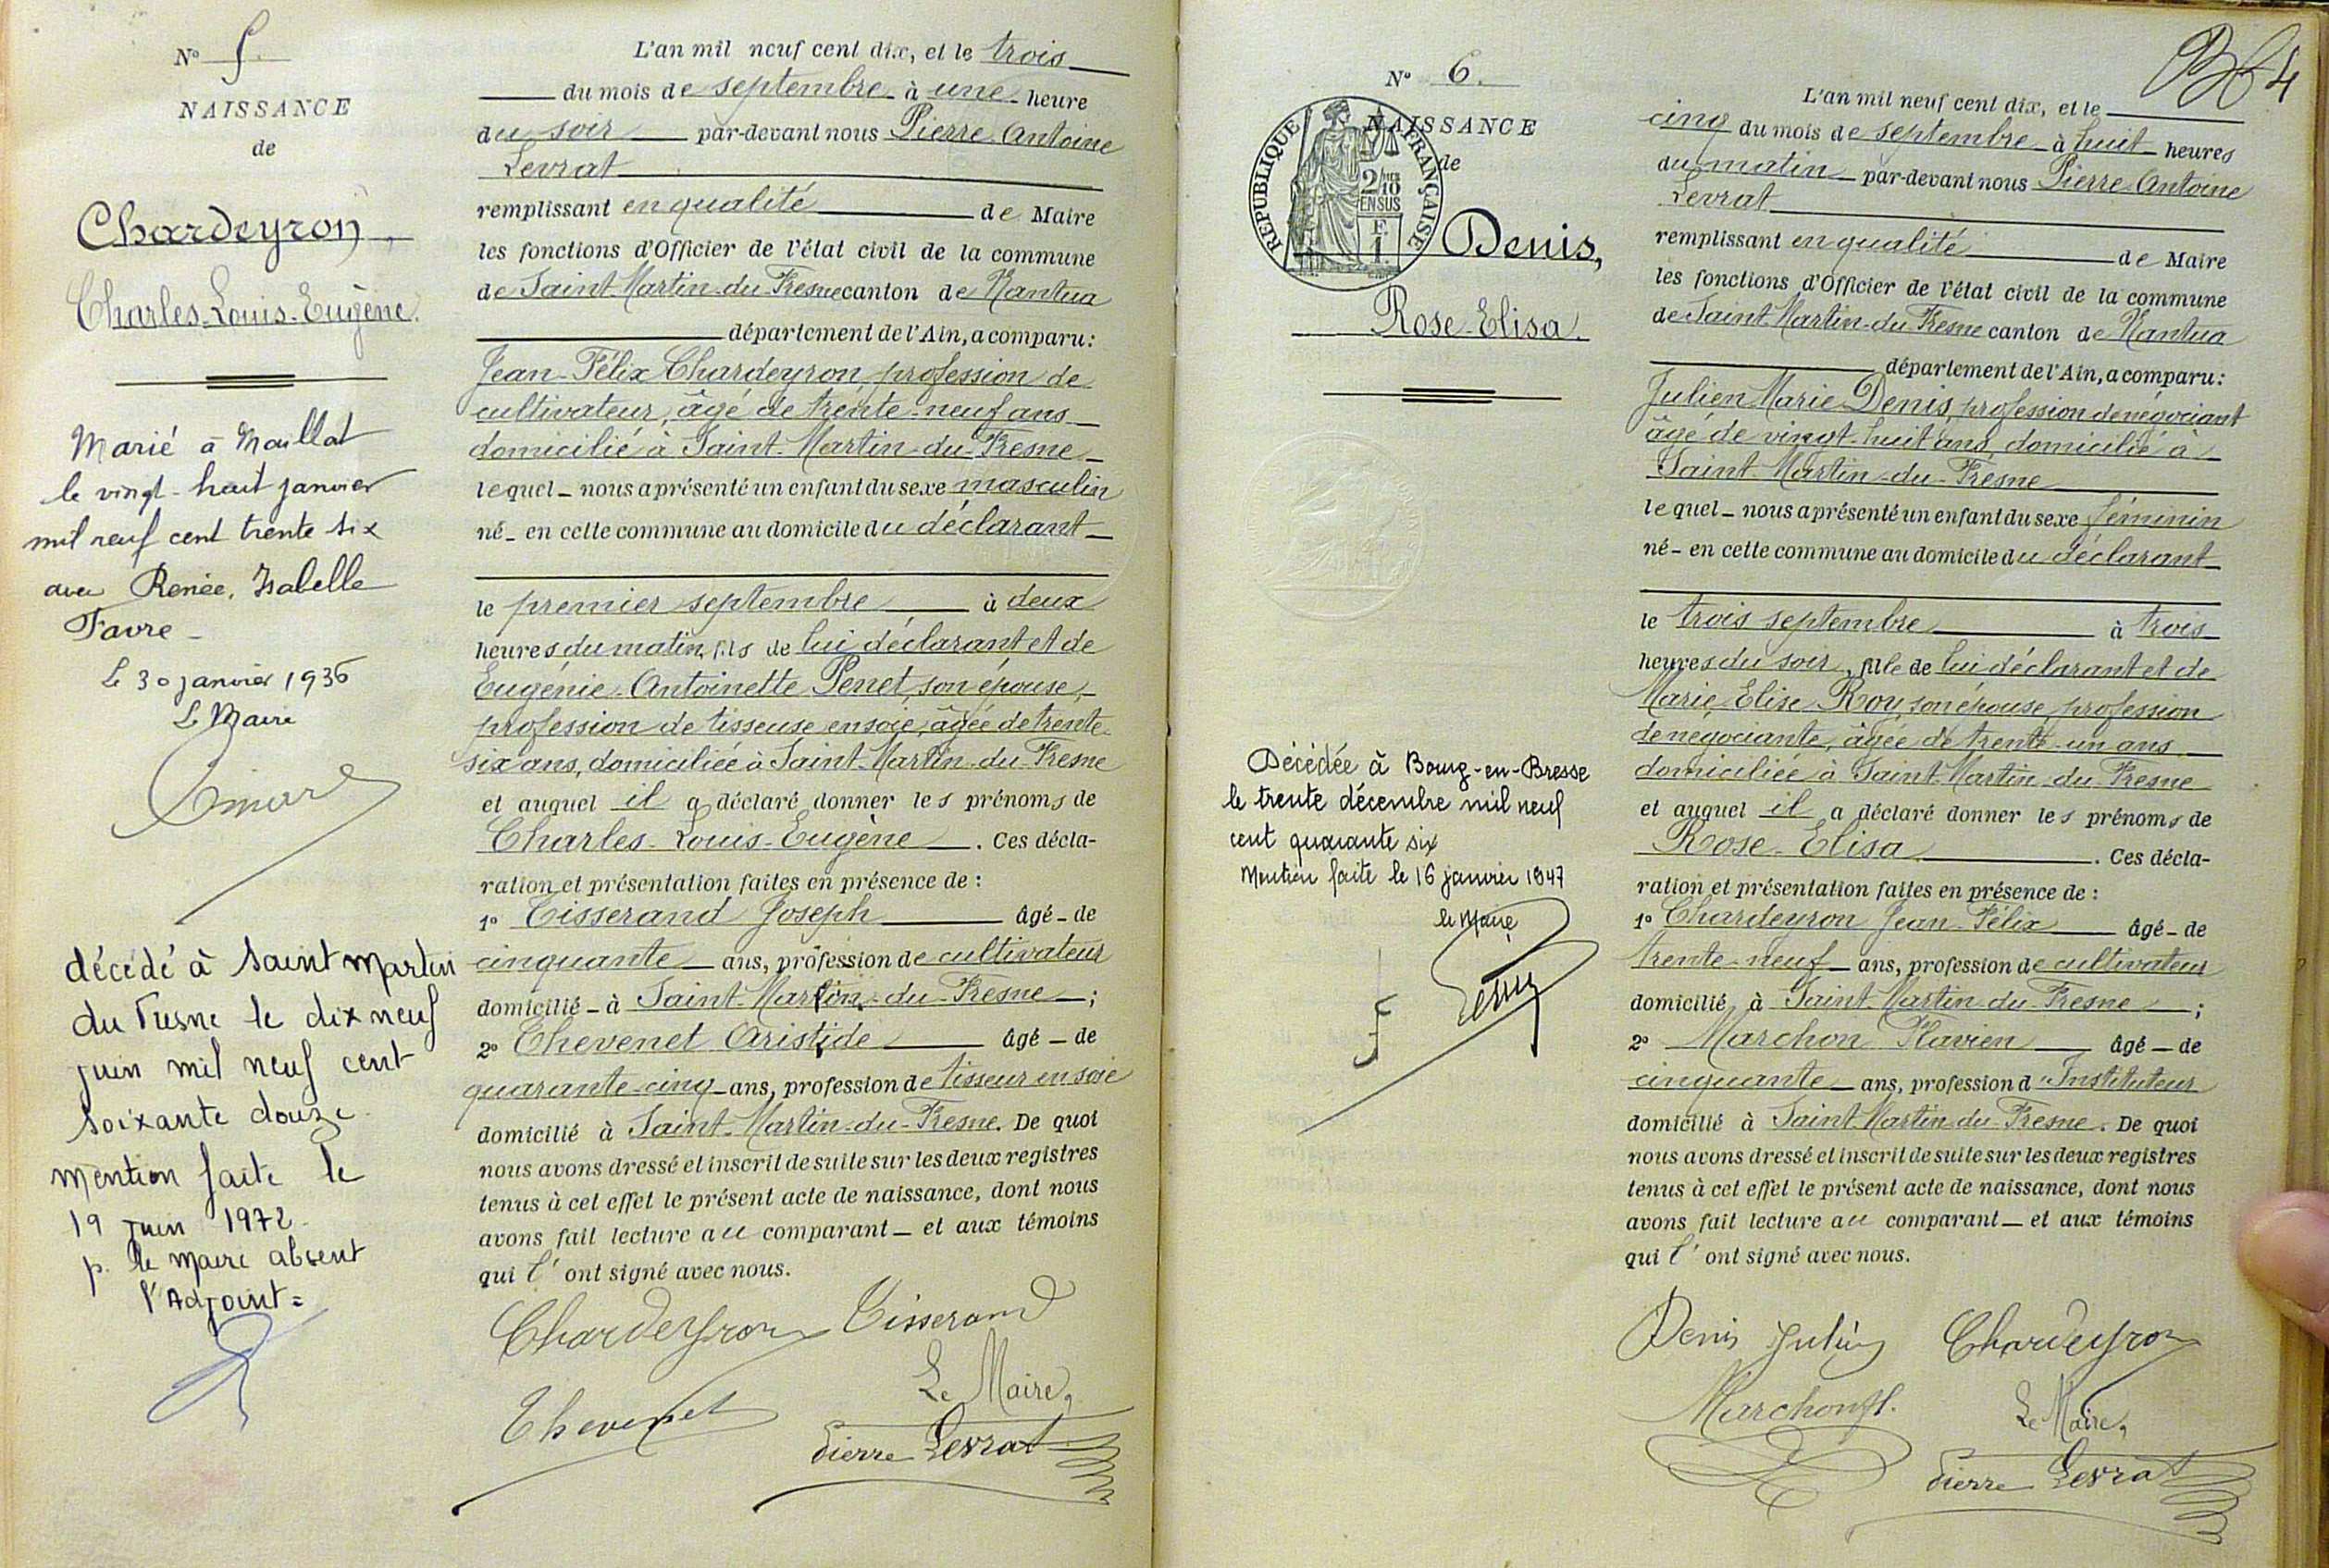 N° 5.
NAISSANCE
de
Chardeyron,
Charles-Louis-Eugène.
Marié à Maillat
le vingt-huit janvier
mil neuf cent trente six
avec Renée, Isabelle
Favre
Le 30 janvier 1936
Le Maire
décédé à Saint Martin
du Fresne le dix neuf
juin mil neuf cent
soixante douze
mention faite le
19 juin 1972
p. le maire absent
l'Adjoint =
L'an mil neuf cent dix, et le trois
du mois de septembre à une heure
du soir par-devant nous Pierre Antoine
Levrat
remplissant en qualité de Maire
les fonctions d'Officier de l'état civil de la commune
de Saint-Martin-du-Fresne canton de Nantua
département de l'Ain, a comparu :
Jean-Félix Chardeyron, profession de
cultivateur, âgé de trente-neuf ans
domicilié à Saint-Martin-du-Fresne
lequel nous a présenté un enfant du sexe masculin
né en cette commune au domicile du déclarant
le premier septembre à deux
heures du matin, fils de lui déclarant et de
Eugénie-Antoinette Penet, son épouse,
profession de tisseuse en soie, âgée de trente-
six ans, domiciliée à Saint-Martin-du-Fresne
et auquel il a déclaré donner les prénoms de
Charles-Louis-Eugène. Ces décla-
ration et présentation faites en présence de :
1° Tisserand Joseph âgé de
cinquante ans, profession de cultivateur
domicilié à Saint-Martin-du-Fresne ;
2° Thevenet Aristide âgé de
quarante-cinq ans, profession de tisseur en soie
domicilié à Saint-Martin-du-Fresne. De quoi
nous avons dressé et inscrit de suite sur les deux registres
tenus à cet effet le présent acte de naissance, dont nous
avons fait lecture au comparant et aux témoins
qui l'ont signé avec nous.
Chardeyron Tisserand
Thevenet Le Maire,
Pierre Levrat
4
N° 6.
NAISSANCE
de
RÉPUBLIQUE FRANÇAISE
2/10
EN SUS
F.
1.
Denis,
Rose-Elisa.
Décédée à Bourg-en-Bresse
le trente décembre mil neuf
cent quarante six
Mention faite le 16 janvier 1947
le Maire
L'an mil neuf cent dix, et le
cinq du mois de septembre à huit heures
du matin par-devant nous Pierre-Antoine
Levrat
remplissant en qualité de Maire
les fonctions d'Officier de l'état civil de la commune
de Saint-Martin-du-Fresne canton de Nantua
département de l'Ain, a comparu :
Julien Marie Denis, profession de négociant
âgé de vingt-huit ans, domicilié à
Saint-Martin-du-Fresne
lequel nous a présenté un enfant du sexe féminin
né en cette commune au domicile du déclarant
le trois septembre à trois
heures du soir, fille de lui déclarant et de
Marie-Elise Roy, son épouse, profession
de négociante, âgée de trente-un ans,
domiciliée à Saint-Martin-du-Fresne
et auquel il a déclaré donner les prénoms de
Rose-Elisa. Ces décla-
ration et présentation faites en présence de :
1° Chardeyron Jean-Félix âgé de
trente-neuf ans, profession de cultivateur
domicilié à Saint-Martin-du-Fresne ;
2° Marchon Flavien âgé de
cinquante ans, profession d'Instituteur
domicilié à Saint-Martin-du-Fresne. De quoi
nous avons dressé et inscrit de suite sur les deux registres
tenus à cet effet le présent acte de naissance, dont nous
avons fait lecture au comparant et aux témoins
qui l'ont signé avec nous.
Denis Julien Chardeyron
Marchon fl. Le Maire,
Pierre Levrat